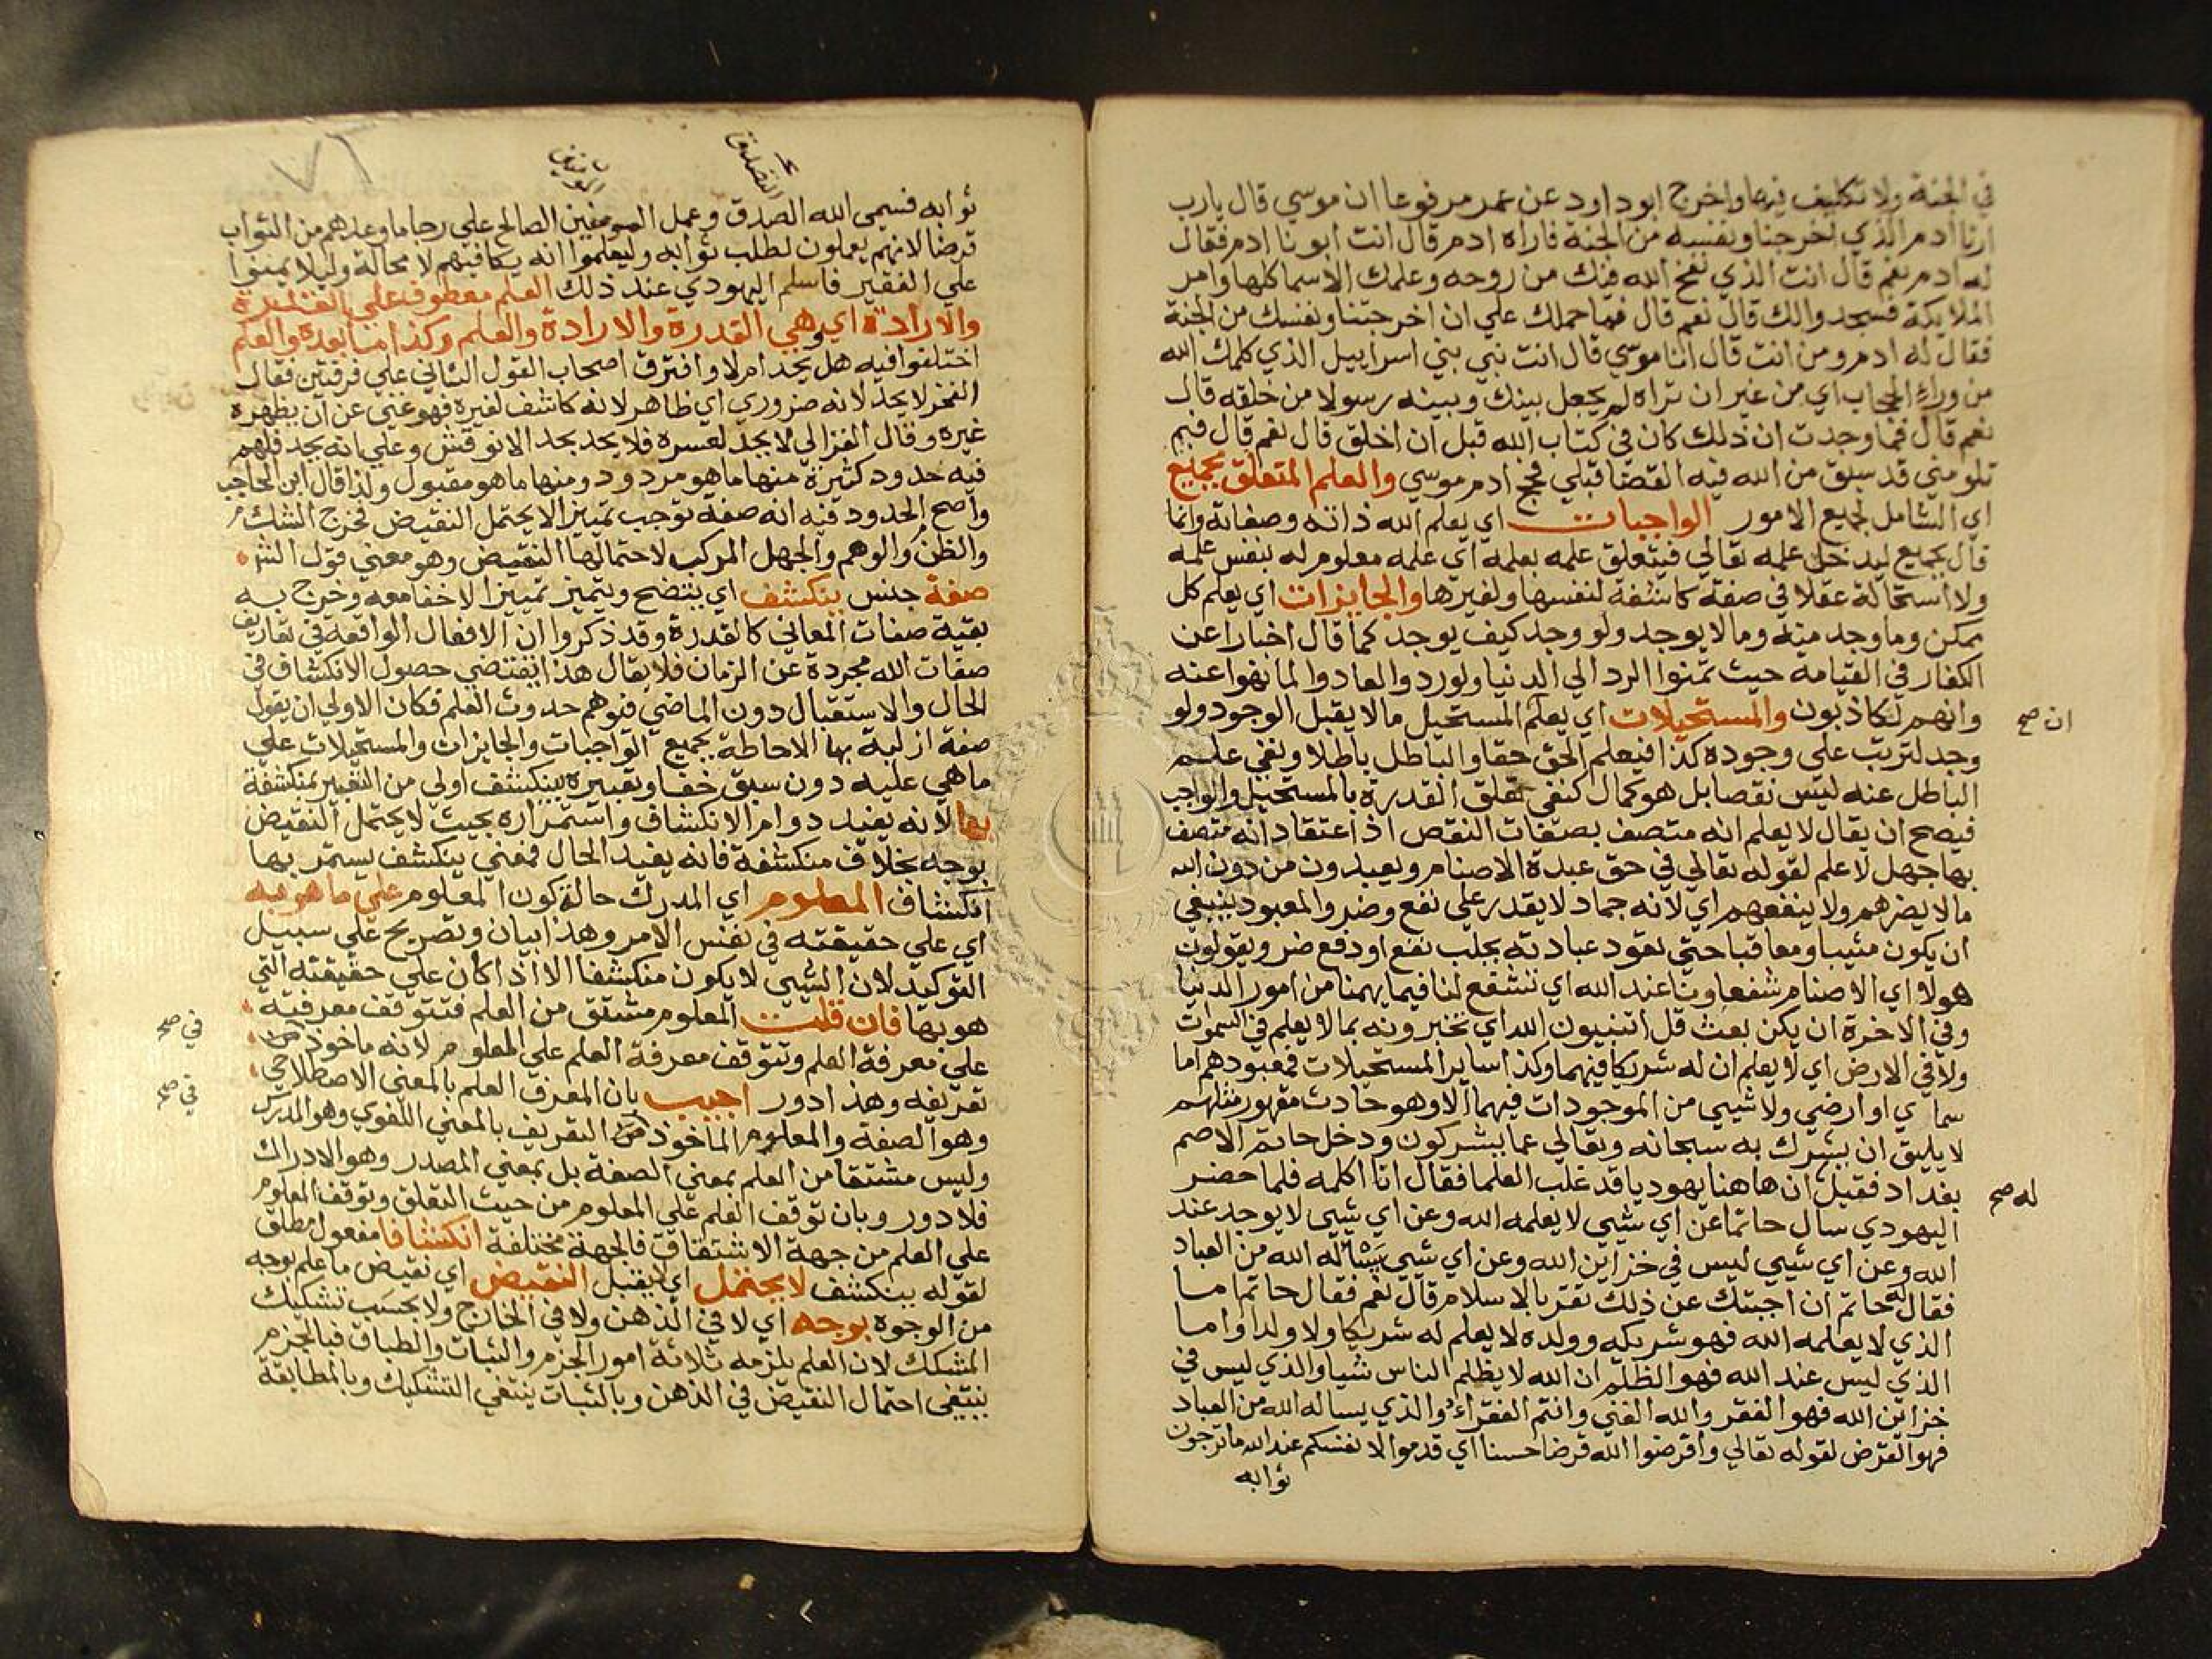 في الجنة ولا تكليف فيها واخرج ابوداود عن عمر مرفوعا ان موسي قال يارب
ارنا ادم الذي اخرجنا ونفسه من الجنة فاراه ادم قال انت ابونا ادم فقال
له ادم نعم قال انت الذي نفخ الله فيك من روحه وعلمك الاسما كلها وامر
الملايكة فسجدوا لك قال نعم قال فما حملك علي ان اخرجتنا ونفسك من الجنة
فقال له ادم ومن انت قال انا موسي قال انت نبي بني اسراييل الذي كلمك الله
من وراء الحجاب اي من غير ان تراه لم يجعل بينك وبينه رسولا من خلقه قال
نعم قال فما وجدت ان ذلك كان في كتاب الله قبل ان اخلق قال نعم قال فيم
تلومني قد سبق من الله فيه القضا قبلي فحج ادم موسي والعلم المتعلق بجميع
اي الشامل لجميع الامور الواجبات اي يعلم الله ذاته وصفاته وانما
قال بجميع ليدخل علمه تعالي فيتعلق علمه بعلمه اي علمه معلوم له بنفس علمه
ولا استحالة عقلا في صفة كاشفة لنفسها ولغيرها والجايزات اي يعلم كل
ممكن وما وجد منه وما لا يوجد ولو وجد كيف يوجد كما قال اخبارا عن
الكفار في القيامة حيث تمنوا الرد الي الدنيا ولو ردوا لعادوا لما نهوا عنه
وانهم لكاذبون والمستحيلات اي يعلم المستحيل ما لا يقبل الوجود ولو
ان صح
وجد لترتب علي وجوده كذا فيعلم الحق حقا والباطل باطلا ونفي علم
الباطل عنه ليس نقصا بل هو كمال كنفي تعلق القدرة بالمستحيل والواجب
فيصح ان يقال لا يعلم انه متصف بصفات النقص اذ اعتقاد انه متصف
بها جهل لا علم لقوله تعالي في حق عبدة الاصنام ويعبدون من دون الله
ما لا يضرهم ولا ينفعهم اي لانه جماد لا يقدر علي نفع وضر والمعبود ينبغي
ان يكون مثيبا ومعاقبا حتي تعود عبادته بجلب نفع او دفع ضر ويقولون
هولا اي الاصنام شفعاونا عند الله اي تشفع لنا فيما يهمنا من امور الدنيا
وفي الاخرة ان يكن بعث قل اتنبيون الله اي تخبرونه بما لا يعلم في السموت
ولا في الارض اي لا يعلم ان له شريكا فيهما وكذا ساير المستحيلات فمعبودهم اما
سماي او ارضي ولا شيي من الموجودات فيهما الا وهو حادث مقهور مثلهم
لا يليق ان يشرك به سبحانه وتعالي عما يشركون ودخل حاتم الاصم
بغداد فقيل ان هاهنا يهوديا قد غلب العلما فقال انا اكلمه فلما حضر
له صح
اليهودي سال حاتما عن اي شيي لا يعلمه الله وعن اي شيي لا يوجد عند
الله وعن اي شيي ليس في خزاين الله وعن اي شيي يساله الله من العباد
فقال له حاتم ان اجبتك عن ذلك تقر بالاسلام قال نعم فقال حاتم اما
الذي لا يعلمه الله فهو شريكه وولده لا يعلم له شريكا ولا ولدا واما
الذي ليس عند الله فهو الظلم ان الله لا يظلم الناس شيا والذي ليس في
خزاين الله فهو الفقر والله الغني وانتم الفقراء والذي يساله الله من العباد
فهو القرض لقوله تعالي واقرضوا الله قرضا حسنا اي قدموا لانفسكم عند الله ما ترجون
ثوابه
ثوابه فسمي الله الصدق وعمل المومنين الصالح علي رجا ما وعدهم من الثواب
قرضا لانهم يعملون لطلب ثوابه وليعلموا انه يكافيهم لا محالة وليلا يمنوا
علي الفقير فاسلم اليهودي عند ذلك العلم معطوف علي القدرة
والارادة اي وهي القدرة والارادة والعلم وكذا ما بعده والعلم
اختلفوا فيه هل يحد ام لا وافترق اصحاب القول الثاني علي فرقتين فقال
الفخر لا يحد لانه ضروري اي ظاهر لانه كاشف لغيره فهو غني عن ان يظهره
غيره وقال الغزالي لا يحد لعسره فلا يحد بحد الا نوقش وعلي انه يحد فلهم
فيه حدود كثيرة منها ما هو مردود ومنها ما هو مقبول ولذا قال ابن الحاجب
واصح الحدود فيه انه صفة توجب تمييزا لا يحتمل النقيض فخرج الشك
والظن والوهم والجهل المركب لاحتمالها النقيض وهو معني قول الش
صفة جنس ينكشف اي يتضح ويتميز تمييزا لا خفا معه وخرج به
بقية صفات المعاني كالقدرة وقد ذكروا ان الافعال الواقعة في تعاريف
صفات الله مجردة عن الزمان فلا يقال هذا يقتضي حصول الانكشاف في
الحال والاستقبال دون الماضي فيوهم حدوث العلم فكان الاولي ان يقول
صفة ازلية بها الاحاطة بجميع الواجبات والجايزات والمستحيلات علي
ما هي عليه دون سبق خفا وتعبيره بينكشف اولي من التعبير بمنكشفة
بها لانه يفيد دوام الانكشاف واستمراره بحيث لا يحتمل النقيض
بوجه بخلاف منكشفة فانه يفيد الحال فمعني ينكشف يستمر بها
انكشاف المعلوم اي المدرك حالة كون المعلوم علي ما هو به
اي علي حقيقته في نفس الامر وهذا بيان وتصريح علي سبيل
التوكيد لان الشيي لا يكون منكشفا الا اذا كان علي حقيقته التي
هو بها فان قلت المعلوم مشتق من العلم فتتوقف معرفته
في صح
علي معرفة العلم وتتوقف معرفة العلم علي المعلوم لانه ماخوذ من
تعريفه وهذا دور اجيب بان المعرف العلم بالمعني الاصطلاحي
في صح
وهو الصفة والمعلوم الماخوذ من التعريف بالمعني اللغوي وهو المدرك
وليس مشتقا من العلم بمعني الصفة بل بمعني المصدر وهو الادراك
فلا دور وبان توقف العلم علي المعلوم من حيث التعلق وتوقف المعلوم
علي العلم من جهة الاشتقاق فالجهة مختلفة انكشافا مفعول مطلق
لقوله ينكشف لا يحتمل اي لا يقبل النقيض اي نقيض ما علم بوجه
من الوجوه بوجه اي لا في الذهن ولا في الخارج ولا بحسب تشكيك
المشكك لان العلم يلزمه ثلاثة امور الجزم والثبات والطباق فبالجزم
ينتفي احتمال النقيض في الذهن وبالثبات ينتفي التشكيك وبالمطابقة